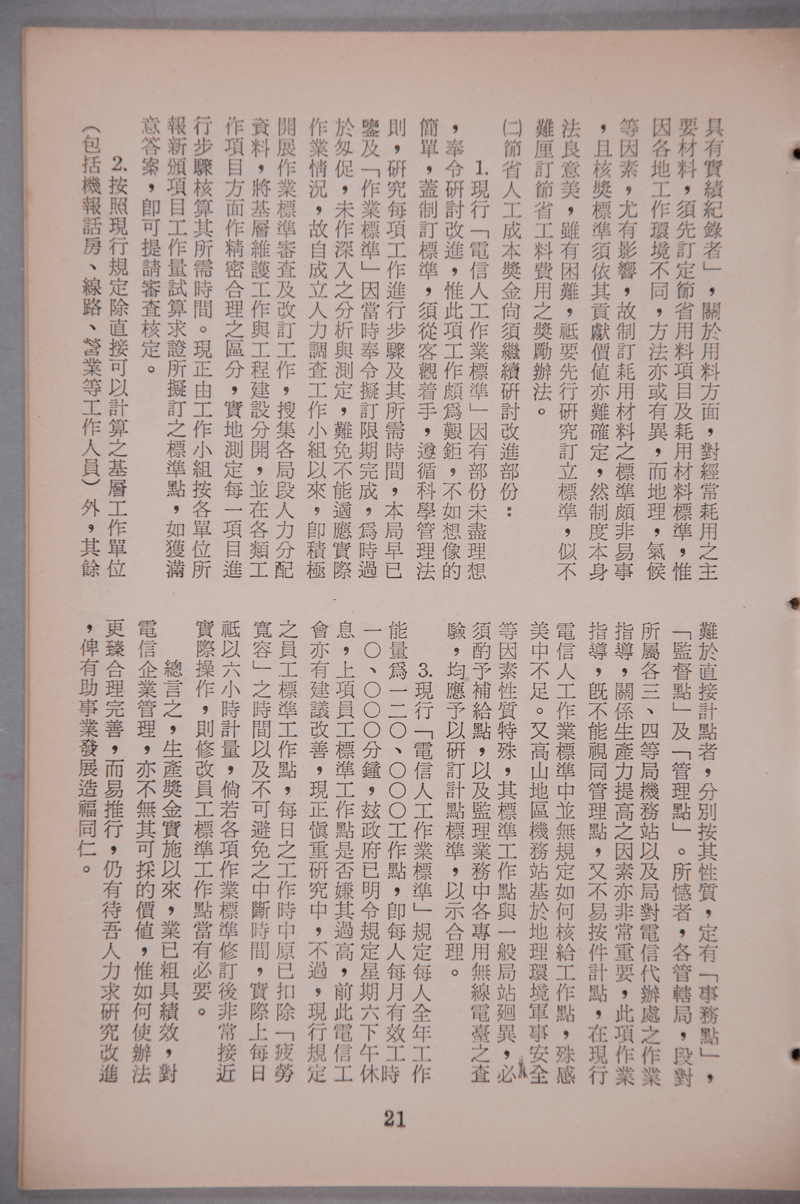 具有實績紀錄者」，關於用料方面，對經常耗用之主
要材料，須先訂定節省用料項目及耗用材料標準，惟
因各地工作環境不同，方法亦或有異，而地理，氣候
等因素，尤有影響，故制訂耗用材料之標準頗非易事
，且核獎標準須依其貢獻價値亦難確定，然制度本身
法良意美，雖有困難，祗要先行硏究訂立標準，似不
難厘訂節省工料費用之獎勵辦法。
㈡節省人工成本獎金尙須繼續硏討改進部份：
1.現行「電信人工作業標準」因有部份未盡理想
，奉令硏討改進，惟此項工作頗爲艱鉅，不如想像的
簡單，蓋制訂標準，須從客觀着手，遵循科學管理法
則，硏究每項工作進行步驟及其所需時間，本局早已
鑒及「作業標準」因當時奉令擬訂限期完成，爲時過
於匆促，未作深入之分析與測定，難免不能適應實際
作業情況，故自成立人力調查工作小組以來，卽積極
開展作業標準審査及改訂工作，搜集各局段人力分配
資料，將基層維護工作與工程建設分開，並在各類工
作項目方面作精密合理之區分，實地測定每一項目進
行步驟核算其所需時間。現正由工作小組按各單位所
報新頒項目工作量試算求證所擬訂之標準點，如獲滿
意答案，卽可提請審查核定。
2.按照現行規定除直接可以計算之基層工作單位
（包括機報話房、線路、營業等工作人員）外，其餘
難於直接計點者，分別按其性質，定有「事務點」，
「監督點」及「管理點」。所憾者，各管轄局，段對
所屬各三、四等局機務站以及局對電信代辦處之作業
指導，關係生產力提高之因素亦非常重要，此項作業
指導，旣不能視同管理點，又不易按件計點，在現行
電信人工作業標準中並無規定如何核給工作點，殊感
美中不足。又高山地區機務站基於地理環境軍事安全
等因素性質特殊，其標準工作點與一般局站廻異，必
須酌予補給點，以及監理業務中各專用無線電臺之査
驗，均應予以硏訂計點標準，以示合理。
3.現行「電信人工作業標準」規定每人全年工作
能量爲一二〇、〇〇〇工作點，卽每人每月有效工時
一〇、〇〇〇分鐘，玆政府已明令規定星期六下午休
息，上項員工標準工作點是否嫌其過高，前此電信工
會亦有建議改善，現正愼重硏究中，不過，現行規定
之員工標準工作點，每日之工作時中原已扣除「疲勞
寬容」之時間以及不可避免之中斷時間，實際上每日
祗以六小時計量，倘若各項作業標準修訂後非常接近
實際操作，則修改員工標準工作點當有必要。
總言之，生產獎金實施以來，業已粗具績效，對
電信企業管理，亦不無其可採的價値，惟如何使辦法
更臻合理完善，而易推行，仍有待吾人力求硏究改進
，俾有助事業發展造福同仁。
21